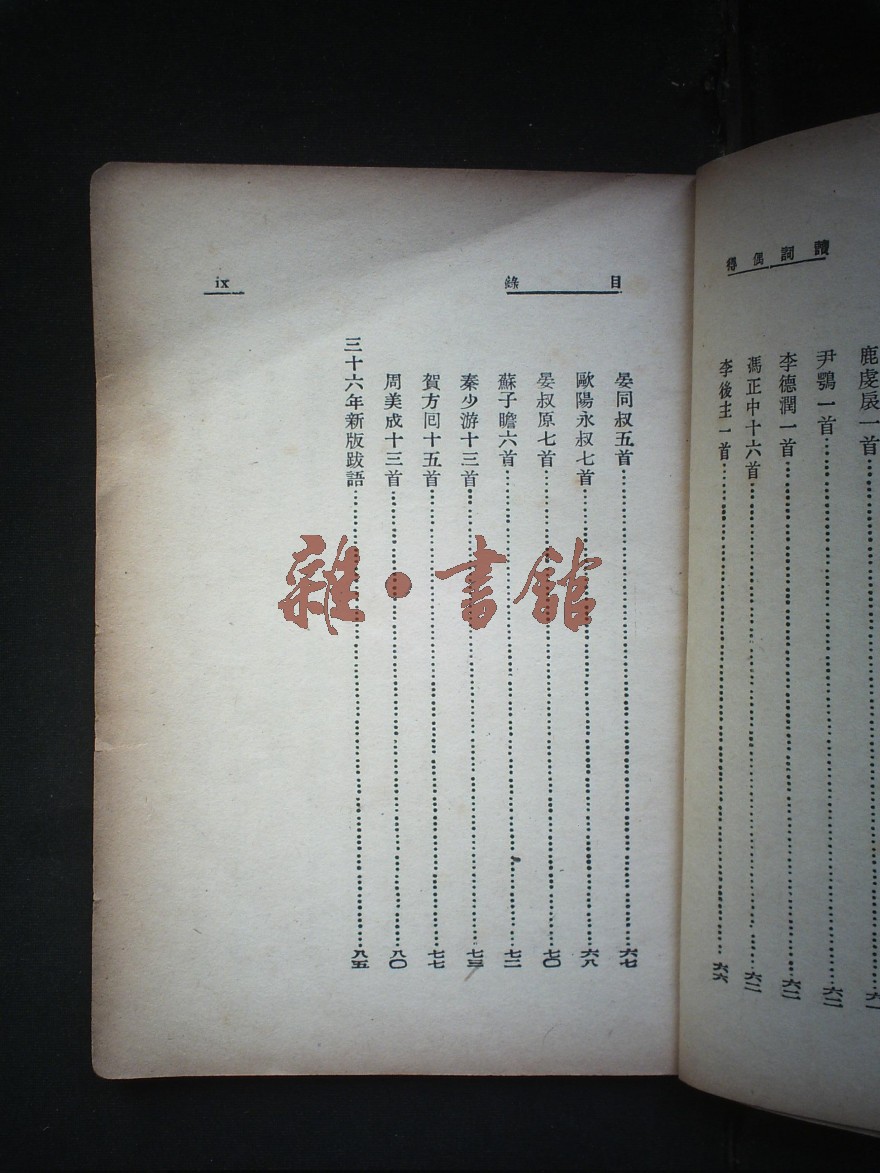 讀詞偶得
鹿虔扆一首……
尹鶚一首……六二
李德潤一首……六二
馮正中十六首……六二
李後主一首……六六
目錄
ix
晏同叔五首……六七
歐陽永叔七首……六八
晏叔原七首……七〇
蘇子瞻六首……七二
秦少游十三首……七三
賀方回十五首……七七
周美成十三首……八〇
三十六年新版跋語……八五
雜·書館